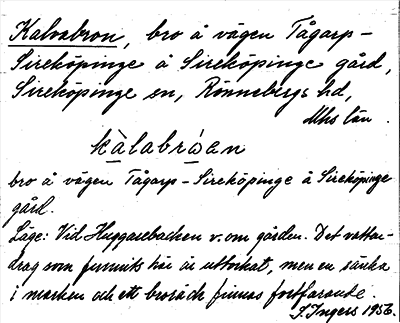 Kalvabron, bro å vägen Tågarp-
Sireköpinge å Sireköpinge gård,
Sireköpinge sn, Rönnebergs hd,
Mhs län.
kàlabrόen
bro å vägen Tågarp-Sireköpinge å Sireköpinge
gård.
Läge: Vid Huggarebacken v. om gården. Det vatten-
drag som funnits här är uttorkat, men en sänka
i marken och ett broräck finnas fortfarande.
S. Ingers 1956.